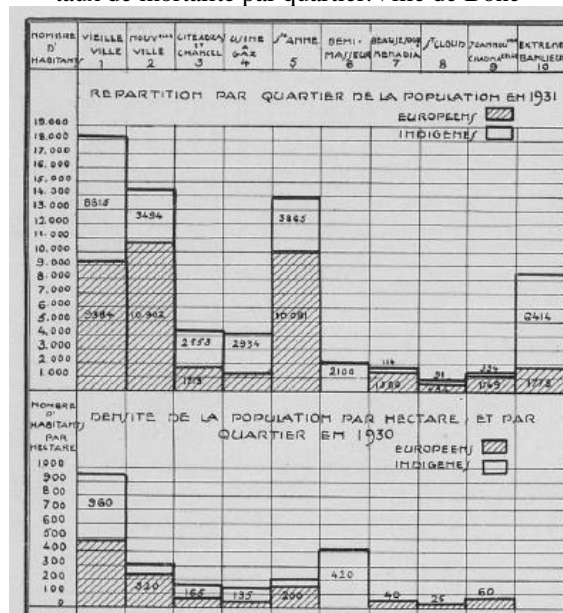 taux de mortalité par quartier.Ville de Bône
NOMBRE D' HABITANTS
VIEILLE VILLE 1
NOUVELLE VILLE 2
3
USINE A GAZ 4
Ste ANNE 5
6
7
St CLOUD 8
9
EXTREME BANLIEUE 10
REPARTITION PAR QUARTIER DE LA POPULATION EN 1931
EUROPEENS
INDIGENES
19.000
18.000
17.000
16.000
15.000
14.000
13.000
12.000
11.000
10.000
9.000
8.000
7.000
6.000
5.000
4.000
3.000
2.000
1.000
8615
3494
3865
9384
10.902
2553
2934
2100
114
6414
NOMBRE D' HABITANTS PAR HECTARE
DENSITE DE LA POPULATION PAR HECTARE, ET PAR
QUARTIER EN 1930
EUROPEENS
INDIGENES
1000
900
800
700
600
500
400
300
200
100
0
960
320
165
135
200
420
40
25
60